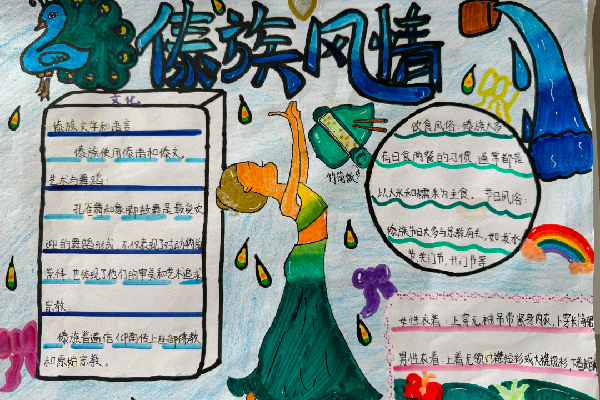 傣族风情
文化
傣族文字和语言
傣族使用傣语和傣文。
艺术与舞蹈：
孔雀舞和象脚鼓舞是最受欢
迎的舞蹈形式，不仅表现了对动物的
崇拜，也体现了他们的审美和艺术追求
宗教：
傣族普遍信仰南传上座部佛教
和原始宗教。
竹筒饭
饮食风俗：傣族大多
有日食两餐的习惯，通常都是
以大米和糯米为主食。节日风俗：
傣族节日大多与宗教有关，如泼水
节、关门节、开门节等
女性衣着：上穿无袖吊带紧身内衣，上穿长
男性衣着：上着无领对襟短衫或大襟短衫，下